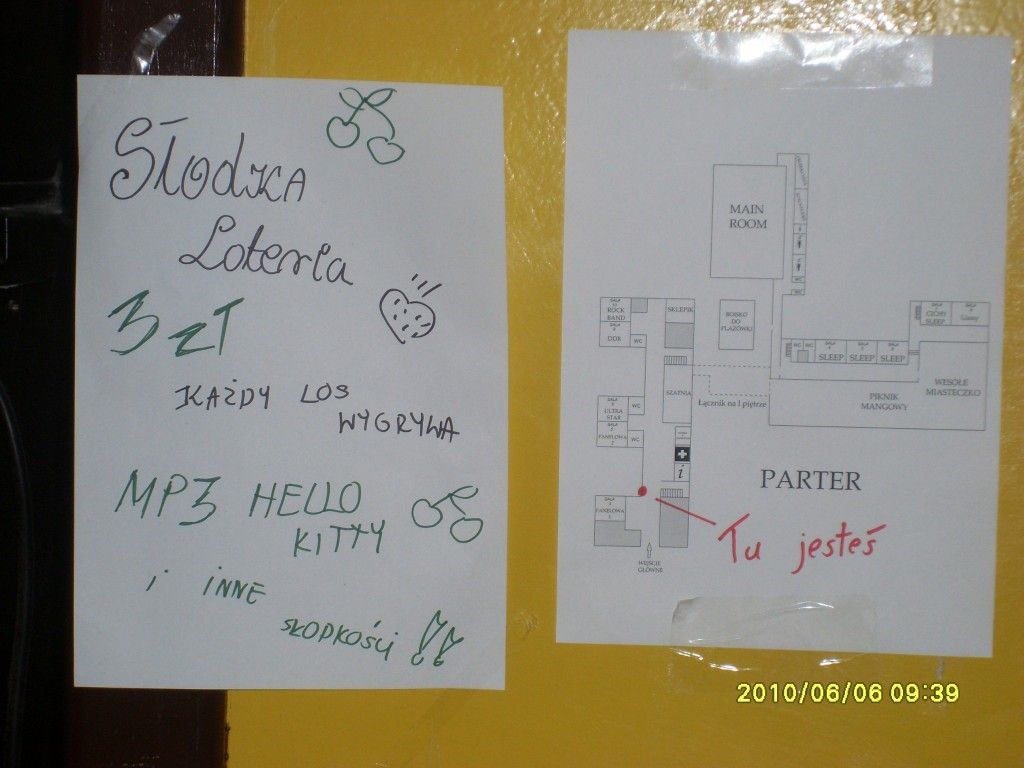 Słodka
Loteria
3 zł
KAŻDY LOS
WYGRYWA
MP3 HELLO
KITTY
i INNE
SŁODKOŚCI !!
MAIN
ROOM
WC
SALA
10
ROCK
BAND
SALA
DDR
WC
SKLEPIK
BOISKO
DO
PLAŻÓWKI
WC WC
SALA
SLEEP
SALA
SLEEP
SALA
SLEEP
SALA
CICHY
SLEEP
SALA
WESOŁE
MIASTECZKO
PIKNIK
MANGOWY
SZATNIA
Łącznik na I piętrze
SALA
ULTRA
STAR
WC
SALA
PANELOWA
2
WC
i
PARTER
SALA
PANELOWA
1
Tu jesteś
WEJŚCIE
GŁÓWNE
2010/06/06 09:39